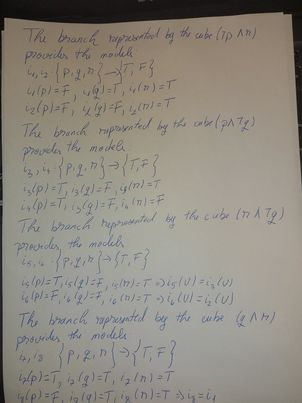 The branch represented by the cube (¬p ∧ r)
provides the models:
i₁, i₂ : {p, q, r} → {T, F}
i₁(p) = F, i₁(q) = T, i₁(r) = T
i₂(p) = F, i₂(q) = F, i₂(r) = T
The branch represented by the cube (p ∧ ¬q)
provides the models:
i₃, i₄ : {p, q, r} → {T, F}
i₃(p) = T, i₃(q) = F, i₃(r) = T
i₄(p) = T, i₃(q) = F, i₄(r) = F
The branch represented by the cube (r ∧ ¬q)
provides, the models
i₅, i₆ : {p, q, r} → {T, F}
i₅(p) = T, i₅(q) = F, i₅(r) = T ⇒ i₅(v) = i₃(v)
i₆(p) = F, i₆(q) = F, i₆(r) = T ⇒ i₆(v) = i₂(v)
The branch represented by the cube (q ∧ r)
provides the models
{p, q, r} → {T, F}
(p) = T, (q) = T, (r) = T